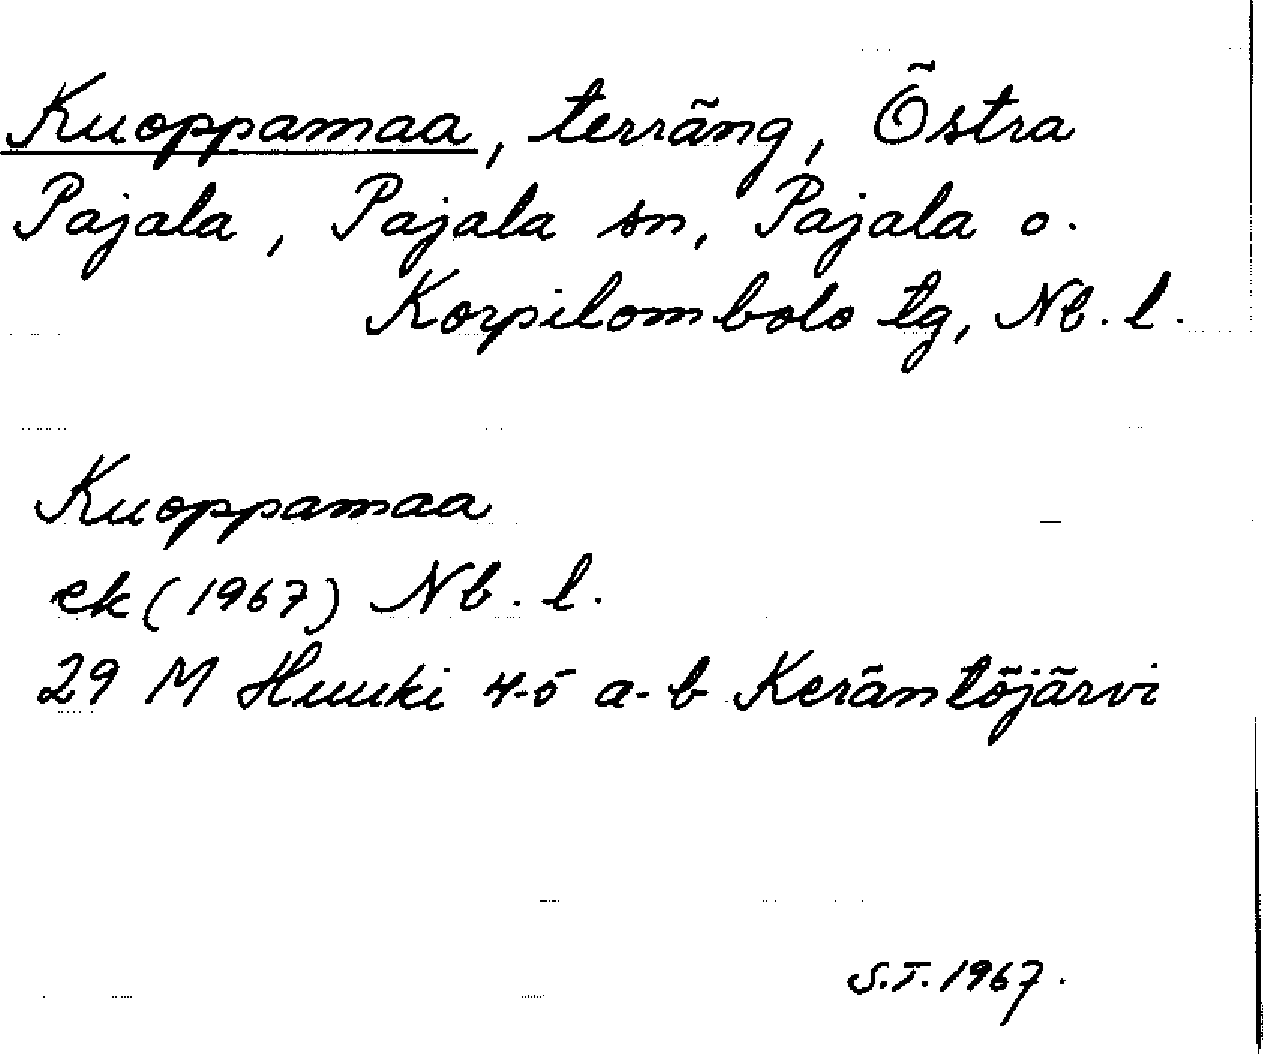 Kuoppamaa, terräng, Östra
Pajala, Pajala sn, Pajala o.
Korpilombolo tg, Nb. l.
Kuoppamaa
ek (1967) Nb. l.
29 M Huuki 4-5 a-b Keräntöjärvi
S.T. 1967.